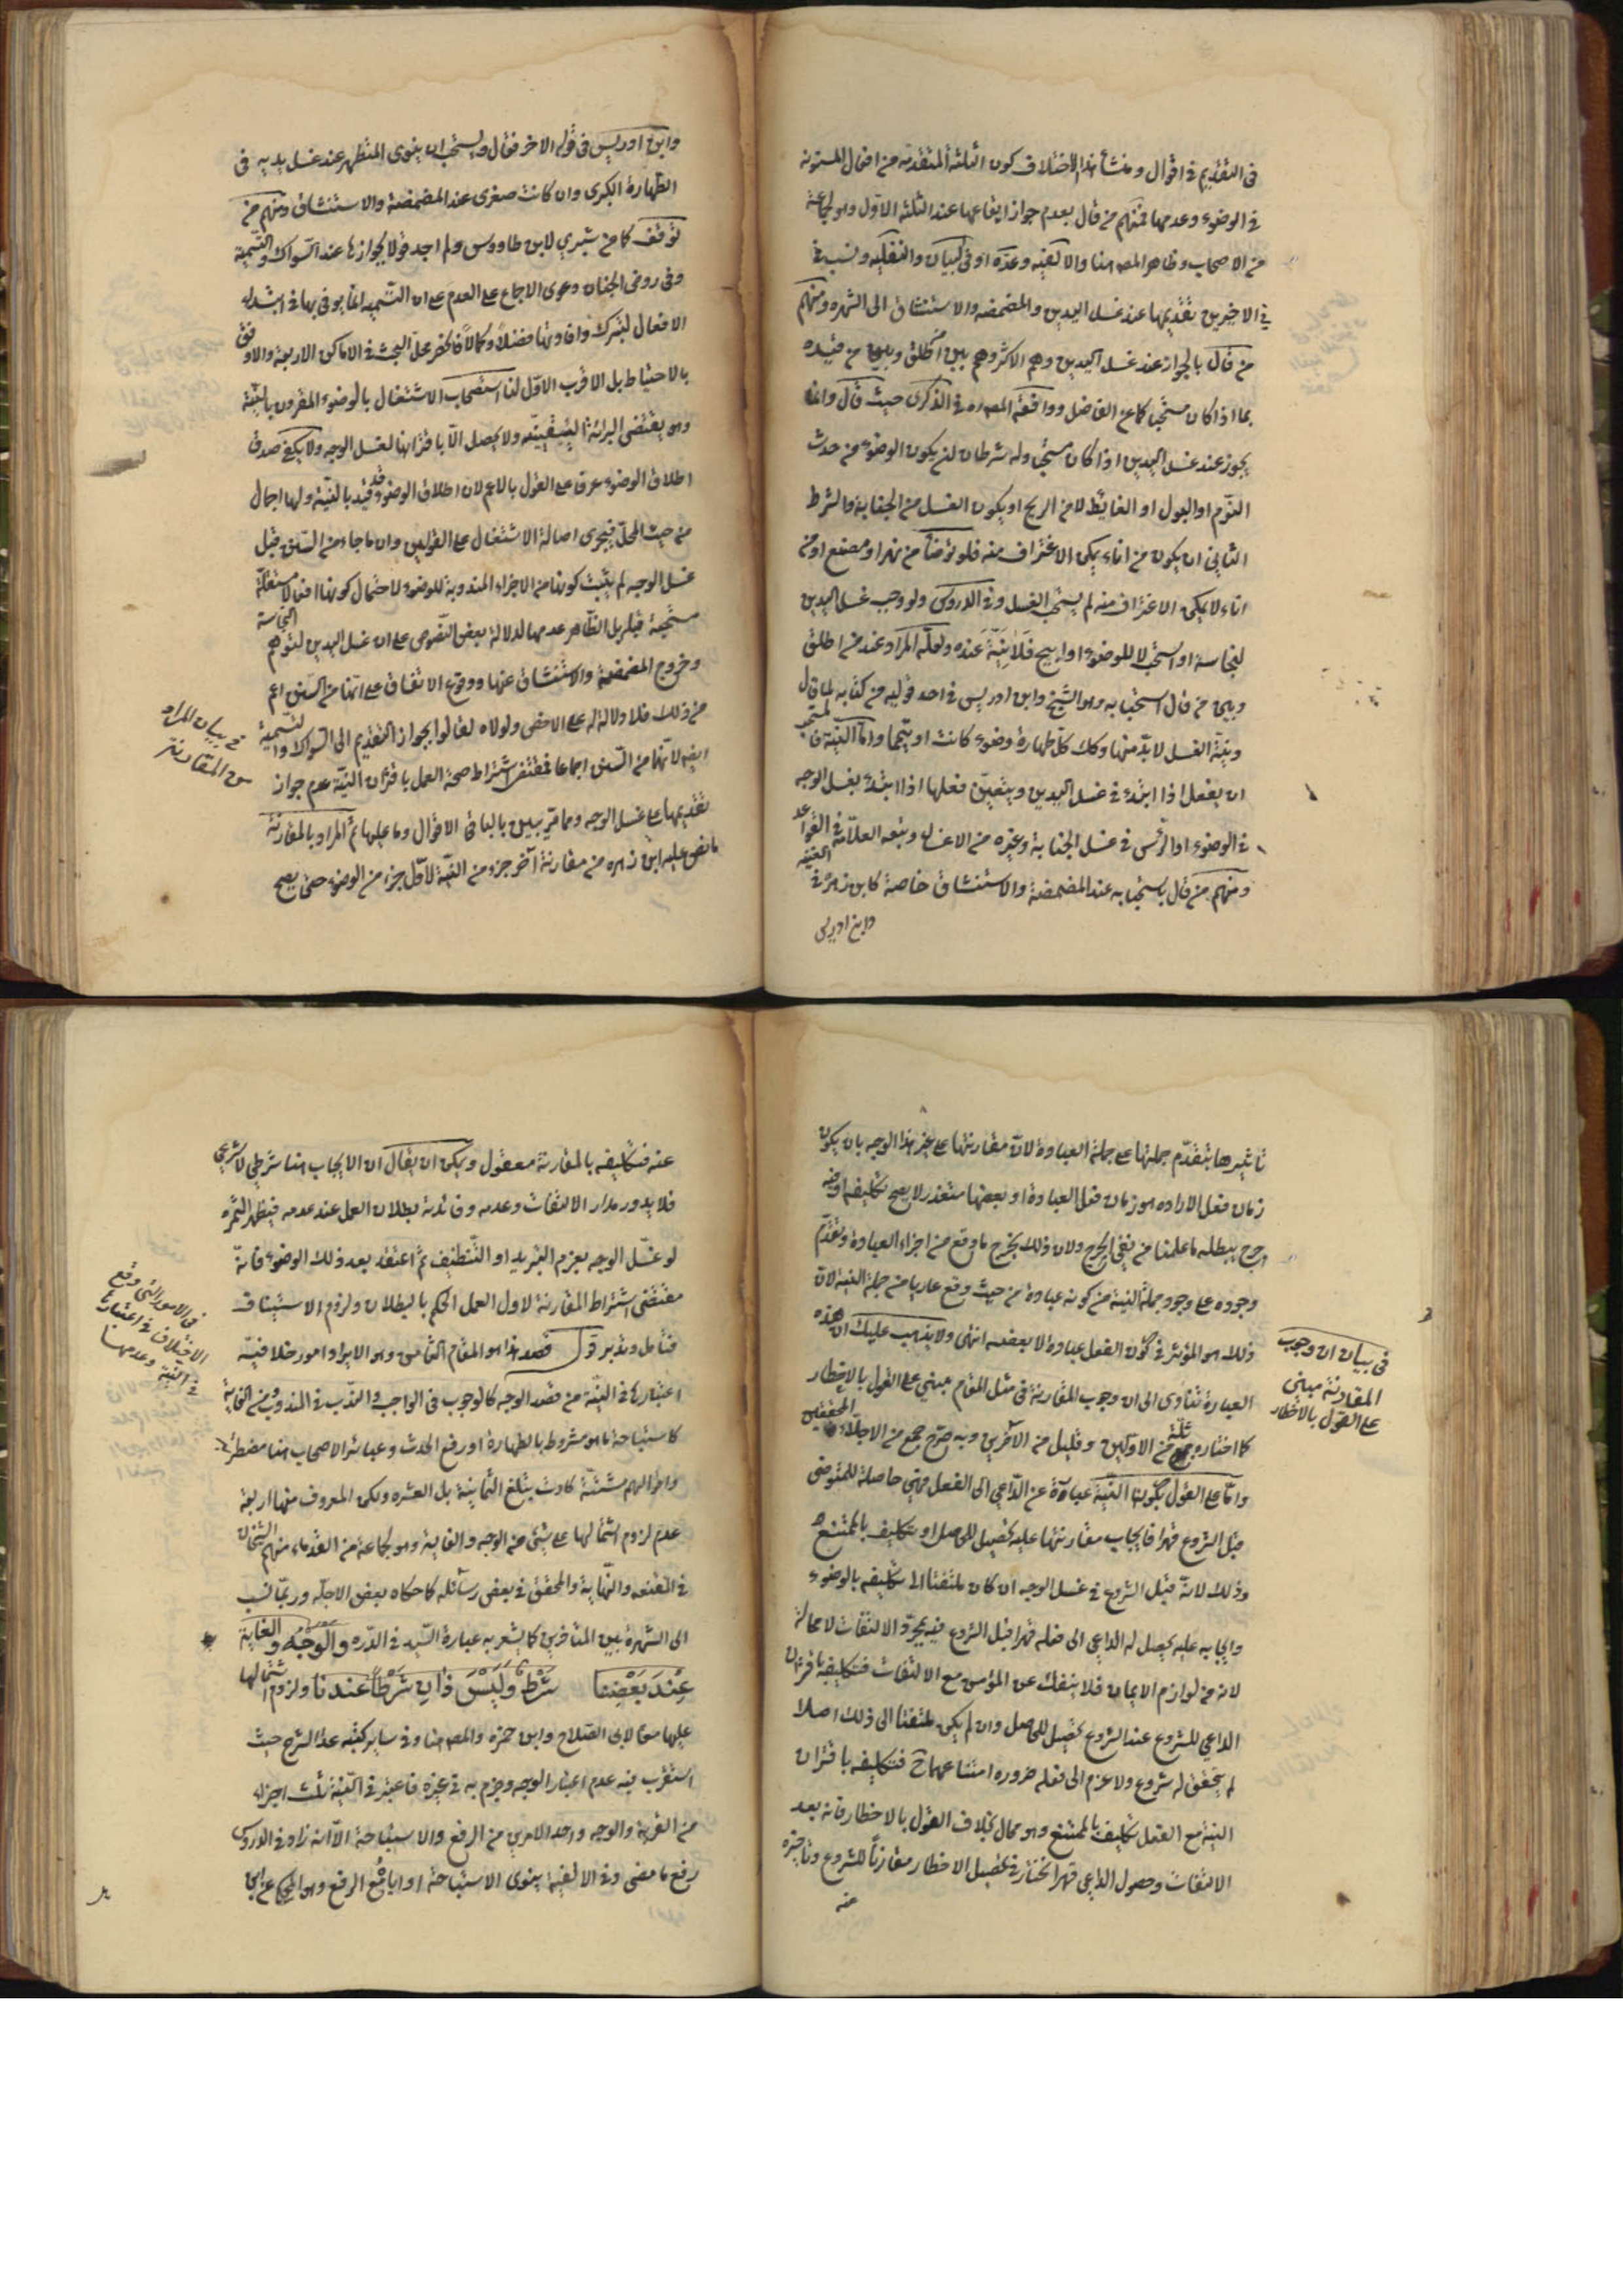 في التقديم في اقوال ومنشأ هذا الاختلاف كون الثلثة المتقدمة من افعال المسنونة
في الوضوء وعدمها فمنهم من قال بعدم جواز ايقاعها عند الثلثة الاول وهو لجماعة
من الاصحاب وظاهر المصـ هنا والالفيه وعدّه او في البيان والنفليه ونسب في
في الاخيرين تقديمها عند غسل اليدين والمضمضه والاستنشاق الى الشهره ومنهم
من قال بالجواز عند غسل اليدين وهم الاكثر وهم بين اطلق وبين من قيده
بما اذا كان مستحبا كما عن الفاضل ووافقه المصـ ره في الذكرى حيث قال وانما
يجوز عند غسل اليدين اذا كان مستحبا وله شرطان ان يكون الوضوء من حدث
النوم او البول او الغايط لا من الريح او يكون الغسل من الجنابة والشرط
الثاني ان يكون من اناء يمكن الاغتراف منه فلو توضأ من نهر او مصنع او من
اناء لا يمكن الاغتراف منه لم يستحب الغسل وفي الدروس ولو وجب غسل اليدين
لنجاسة او استحب لا للوضوء او ابيح فلا نية عنده ولعله المراد عند من اطلق
وبين من قال استحبابه وهو الشيخ وابن ادريس في احد قوليه من كتابه لما قال
ونية الغسل لا بدّ منها وكك كل طهارة وضوء كانت او تيمما واما النية فالمستحب
ان يفعل اذا ابتدء في غسل اليدين ويتعين فعلها اذا ابتدء بغسل الوجه
في الوضوء او الرأس في غسل الجنابة وغيره من الاغسال وتبعه العلّامة في القواعد
ومنهم من قال باستحبابه عند المضمضة والاستنشاق خاصة كابن زهره في الغنيه
وابن ادريس
وابن ادريس في قوله الاخر فقال ويستحب ان ينوى المتطهر عند غسل يديه في
الطهارة الكبرى وان كانت صغرى عند المضمضة والاستنشاق ومنهم من
توقف كما من شيرى لابن طاووس ولم اجد قولا بجوازها عند السواك والتسمية
وفي روض الجنان دعوى الاجماع على العدم على ان التسميه انما يوتى بها في ابتداء
الافعال لتبرك وافادتها فضلا وكمالا فانحصر محل البحث في الاماكن الاربعة والاوفق
بالاحتياط بل الاقرب الاول لنا استصحاب الاشتغال بالوضوء المقرون بالنية
وهو يقتضي البرائة اليقينيه ولا يحصل الّا باقترانها لغسل الوجه ولا يكفي صدق
اطلاق الوضوء عرفا على القول بالاعم لان اطلاق الوضوء قد قيد بالنية ولها اجمال
من حيث المحل فيجرى اصالة الاشتغال على القولين وان ما جاء من السنن قبل
غسل الوجه لم يثبت كونها من الاجزاء المندوبة للوضوء لاحتمال كونها افعالا مستقلة
مستحبة قبله بل الظاهر عدمها لدلالة بعض النصوص على ان غسل اليدين لتوهم النجاسة
وخروج المضمضة والاستنشاق عنها ووقوع الاتفاق على انها من السنن اعم
من ذلك فلا دلالة له على الاخص ولولاه لقالوا بجواز التقديم الى السواك والتسمية
ايضا لانها من السنن اجماعا فمقتضى اشتراط صحة العمل باقتران النية عدم جواز
تقديمها على غسل الوجه ومما مرّ يبين بالباقى الاقوال وما عليها ثم المراد بالمقارنة
ما نص عليه ابن زهره من مقارنة آخر جزء من النية لاول جزء من الوضوء حتى يصح
في بيان المراد
من المقارنة
تاثيرها بتقدّم جملتها على جملة العبادة لانّ مقارنتها على غير هذا الوجه بان يكون
زمان فعل الاراده هو زمان فعل العبادة او بعضها متعذر لا يصح تكليفه او فيه
حرج يبطله ما علمنا من نفي الحرج ولان ذلك يخرج ما وقع من اجزاء العبادة وتقدّم
وجوده على وجود جملة النية من كونه عبادة من حيث وقع عاريا من جملة النية لان
ذلك هو المؤثر في كون الفعل عبادة لا بعضه انتهى ولا يذهب عليك ان هذه
العبارة تنادى الى ان وجوب المقارنة في مثل المقام مبني على القول بالاخطار
كما اختاره ثلّة من الاولين وقليل من الآخرين وبه صرّح جمع من الاجلاء المحققين
وامّا على القول بكون النية عبارة عن الدّاعي الى الفعل فهي حاصلة للمتوضى
قبل الشروع قهرا فايجاب مقارنتها عليه تحصيل للحاصل او تكليف بالممتنع
وذلك لانّه قبل الشروع في غسل الوجه ان كان ملتفتا الى تكليفه بالوضوء
وايجابه عليه يحصل له الداعي الى فعله قهرا قبل الشروع فيه بمجرّد الالتفات لا محالة
لانه من لوازم الايمان فلا ينفك عن المؤمن مع الالتفات فتكليفه باقتران
الداعي للشروع عند الشروع تحصيل للحاصل وان لم يكن ملتفتا الى ذلك اصلا
لم يتحقق له شروع ولا عزم الى فعله ضروره امتناعهما ح فتكليفه باقتران
النية مع الفعل تكليف بالممتنع وهو محال بخلاف القول بالاخطار فانه بعد
الالتفات وحصول الداعي قهرا مختار في تحصيل الاخطار مقارنا للشروع وتاخيره
عنه
في بيان ان وجوب
المقارنة مبنى
على القول بالاخطار
عنه فتكليفه بالمقارنة معقول ويمكن ان يقال ان الايجاب هنا شرطي لا شرعي
فلا يدور مدار الالتفات وعدمه وفائدته بطلان العمل عند عدمه فيظهر الثمره
لو غسل الوجه بعزم التبريد او التنظيف ثم اعتقد بعد ذلك الوضوء فانّه
مقتضى اشتراط المقارنة لاول العمل الحكم بالبطلان ولزوم الاستيناف
فتامل وتدبر قوله قصد هذا هو المقام الثامن وهو الايراد امور خلافيّة
اعتبارها في النيّة من قصد الوجه كالوجوب في الواجب والندب في المندوب ومن الغاية
كاستباحة ما هو مشروط بالطهارة او رفع الحدث وعبائر الاصحاب هنا مضطربة
واقوالهم مشتتة كادت يبلغ الثمانية بل العشره ولكن المعروف منها اربعة
عدم لزوم اشتمالها على شئ من الوجه والغاية وهو لجماعة من القدماء منهم الشيخان
في المقنعه والنهاية والمحقق في بعض رسائله كما حكاه بعض الاجلّه وربما نسب
الى الشهرة بين المتاخرين كما يشعر به عبارة السيد في الدّره والوجه والغاية
عِندَ بَعْضِنا شَرْطٌ وَلَيْسَ ذانِ شَرْطًا عندنا ولزوم اشتمالها
عليها معا لابى الصلاح وابن حمزه والمصـ هنا وفي ساير كتبه عدا الشرح حيث
استقرب فيه عدم اعتبار الوجه وجزم به في غيره فاعتبر في النية ثلث اجزاء
من القربة والوجه واحد الامرين من الرفع والاستباحة الّا انه زاد في الدروس
رفع ما مضى وفي الالفيه ينوى الاستباحة او اياه مع الرفع وهو المحكي عن
في الامور التى وقع
الاختلاف في اعتبارها
في النية وعدمها